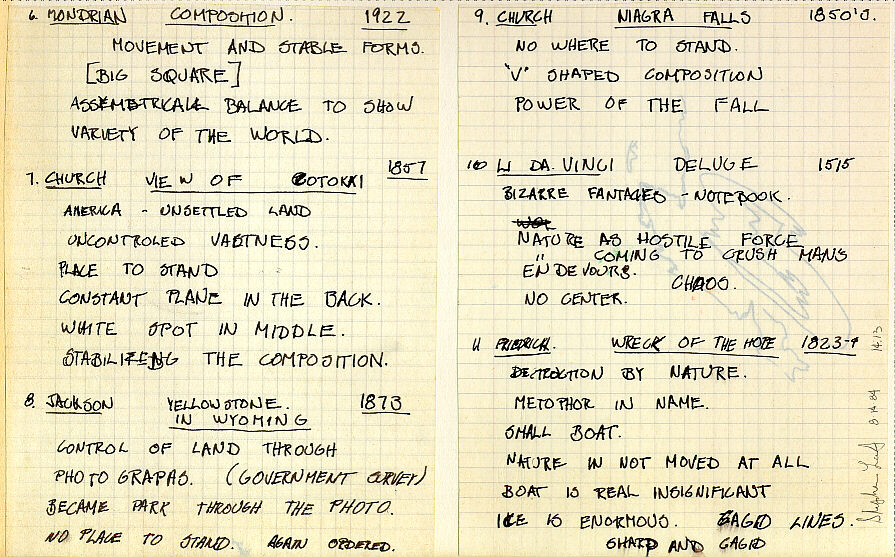 6. MONDRIAN COMPOSITION. 1922
MOVEMENT AND STABLE FORMS.
[BIG SQUARE]
ASSEMETRICAL BALANCE TO SHOW
VARIETY OF THE WORLD.
7. CHURCH VIEW OF COTOKAI 1857
AMERICA - UNSETTLED LAND
UNCONTROLED VASTNESS.
PLACE TO STAND
CONSTANT PLANE IN THE BACK.
WHITE SPOT IN MIDDLE.
STABILIZING THE COMPOSITION.
8. JACKSON YELLOWSTONE. 1873
IN WYOMING
CONTROL OF LAND THROUGH
PHOTO GRAPAS. (GOVERNMENT SURVEY)
BECAME PARK THROUGH THE PHOTO.
NO PLACE TO STAND. AGAIN ORDERED.
9. CHURCH NIAGRA FALLS 1850'S.
NO WHERE TO STAND.
"V" SHAPED COMPOSITION
POWER OF THE FALL
10 LI DA. VINCI DELUGE 1515
BIZARRE FANTACIES - NOTEBOOK.
NATURE AS HOSTILE FORCE
" COMING TO CRUSH MANS
ENDEVOURS. CHAOS.
NO CENTER.
11 FRIEDRICH. WRECK OF THE HOPE 1823-4
DECTROCTION BY NATURE.
METOPHOR IN NAME.
SMALL BOAT.
NATURE IN NOT MOVED AT ALL
BOAT IS REAL INSIGNIFICANT
ICE IS ENORMOUS. GAGED LINES.
SHARP AND GAGED
8 14 84 14:13